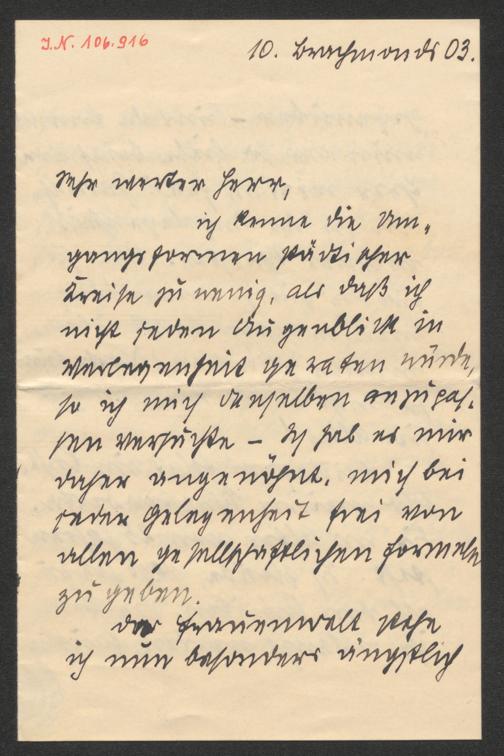 I.N. 106.916
10. Brachmonds 03.
Sehr werter Herr,
ich kenne die Um-
gangsformen städtischer
Kreise zu wenig, als daß ich
nicht jeden Augenblick in
Verlegenheit geraten würde,
so ich mich denselben anzupas-
sen versuchte – Ich hab es mir
daher angewöhnt, mich bei
jeder Gelegenheit frei von
allen gesellschaftlichen Formeln
zu geben.
Der Frauenwelt stehe
ich nun besonders ängstlich